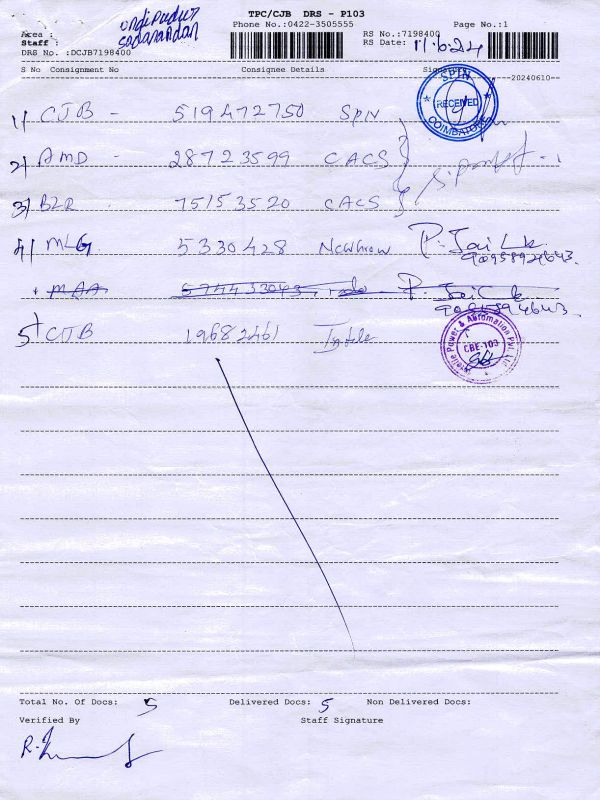 TPC/CJB DRS - P103
Phone No.:0422-3505555 Page No.:1
Area :
Staff :
RS No.:7198400
RS Date: 11/6/24
DRS No. :DCJB7198400
S No Consignment No Consignee Details Sign
--20240610--
1) CJB - 519472750 SPIN
SPIN
RECEIVED
COIMBATORE
2) AMD - 28723599 CACS
3) BLR - 75153520 CACS
4) MLG 5330428 Newgrow P. Jai
9095892643.
MAA 574433043
5) CJB 19682461
Power & Automation Pvt. Ltd
CBE-103
Total No. Of Docs: 5 Delivered Docs: 5 Non Delivered Docs:
Verified By Staff Signature